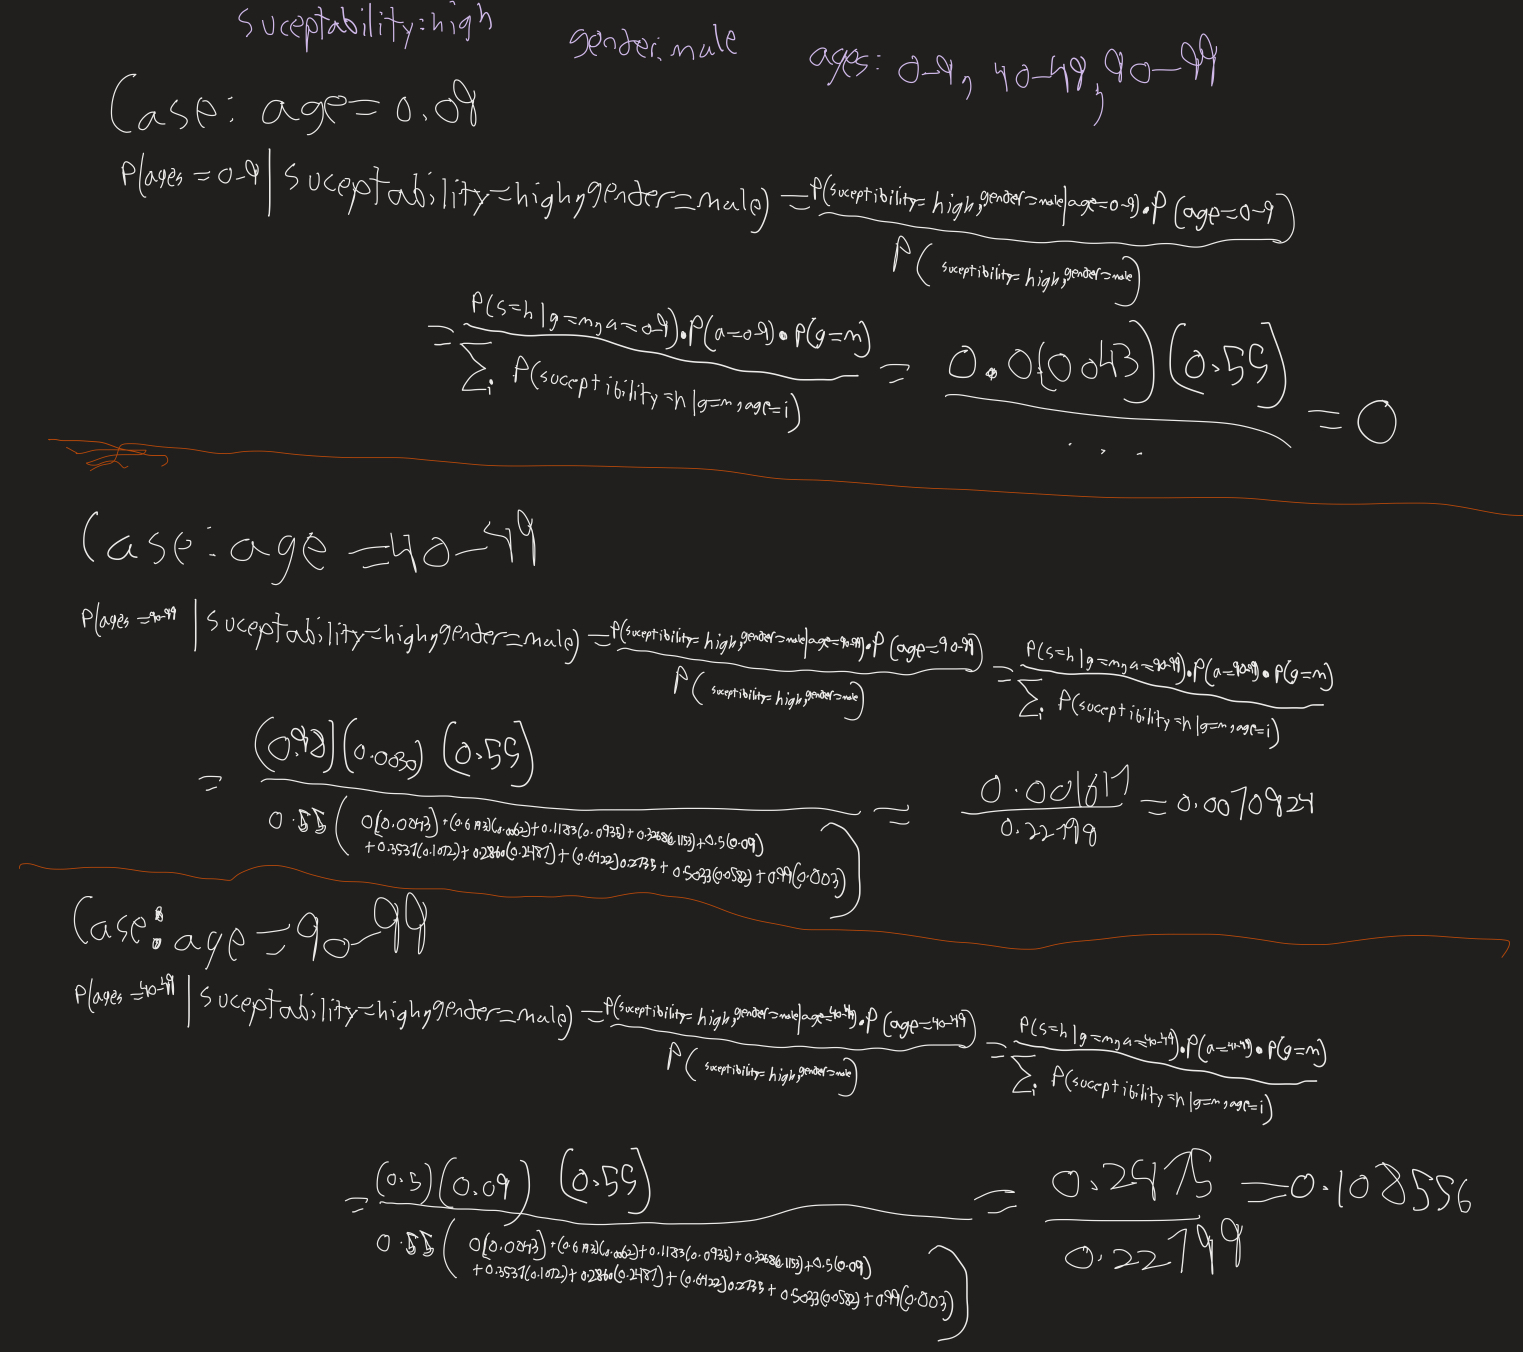 suceptability:high gender:male ages: 0-9, 40-49, 90-99
Case: age=0.09
P(ages = 0-9 | suceptability=high, gender=male) = P(suceptibility= high, gender=male|age=0-9)·P(age=0-9)
P(suceptibility= high, gender=male)
= P(s=h|g=m, a=0-9)·P(a=0-9)·P(g=m)
∑i P(suceptibility=h|g=m, age=i)
= 0.0(0043)(0.55)
...
= 0
Case: age =40-49
P(ages =90-99 | suceptability=high, gender=male) = P(suceptibility= high, gender=male|age=90-99)·P(age=90-99)
P(suceptibility= high, gender=male)
= P(s=h|g=m, a=90-99)·P(a=90-99)·P(g=m)
∑i P(suceptibility=h|g=m, age=i)
= (0.98)(0.0030)(0.55)
0.55( 0(0.0043)+(0.6193)(0.0062)+0.1183(0.0935)+0.3268(0.1153)+0.5(0.09)
+0.3537(0.1072)+0.2860(0.2487)+(0.6422)0.2735+0.5033(0.0582)+0.99(0.003))
= 0.001617
0.22799
= 0.0070924
Case: age=90-99
P(ages =40-49 | suceptability=high, gender=male) = P(suceptibility= high, gender=male|age=40-49)·P(age=40-49)
P(suceptibility= high, gender=male)
= P(s=h|g=m, a=40-49)·P(a=40-49)·P(g=m)
∑i P(suceptibility=h|g=m, age=i)
= (0.5)(0.09)(0.55)
0.55( 0(0.0043)+(0.6193)(0.0062)+0.1183(0.0935)+0.3268(0.1153)+0.5(0.09)
+0.3537(0.1072)+0.2860(0.2487)+(0.6422)0.2735+0.5033(0.0582)+0.99(0.003))
= 0.2475
0.22799
=0.108556